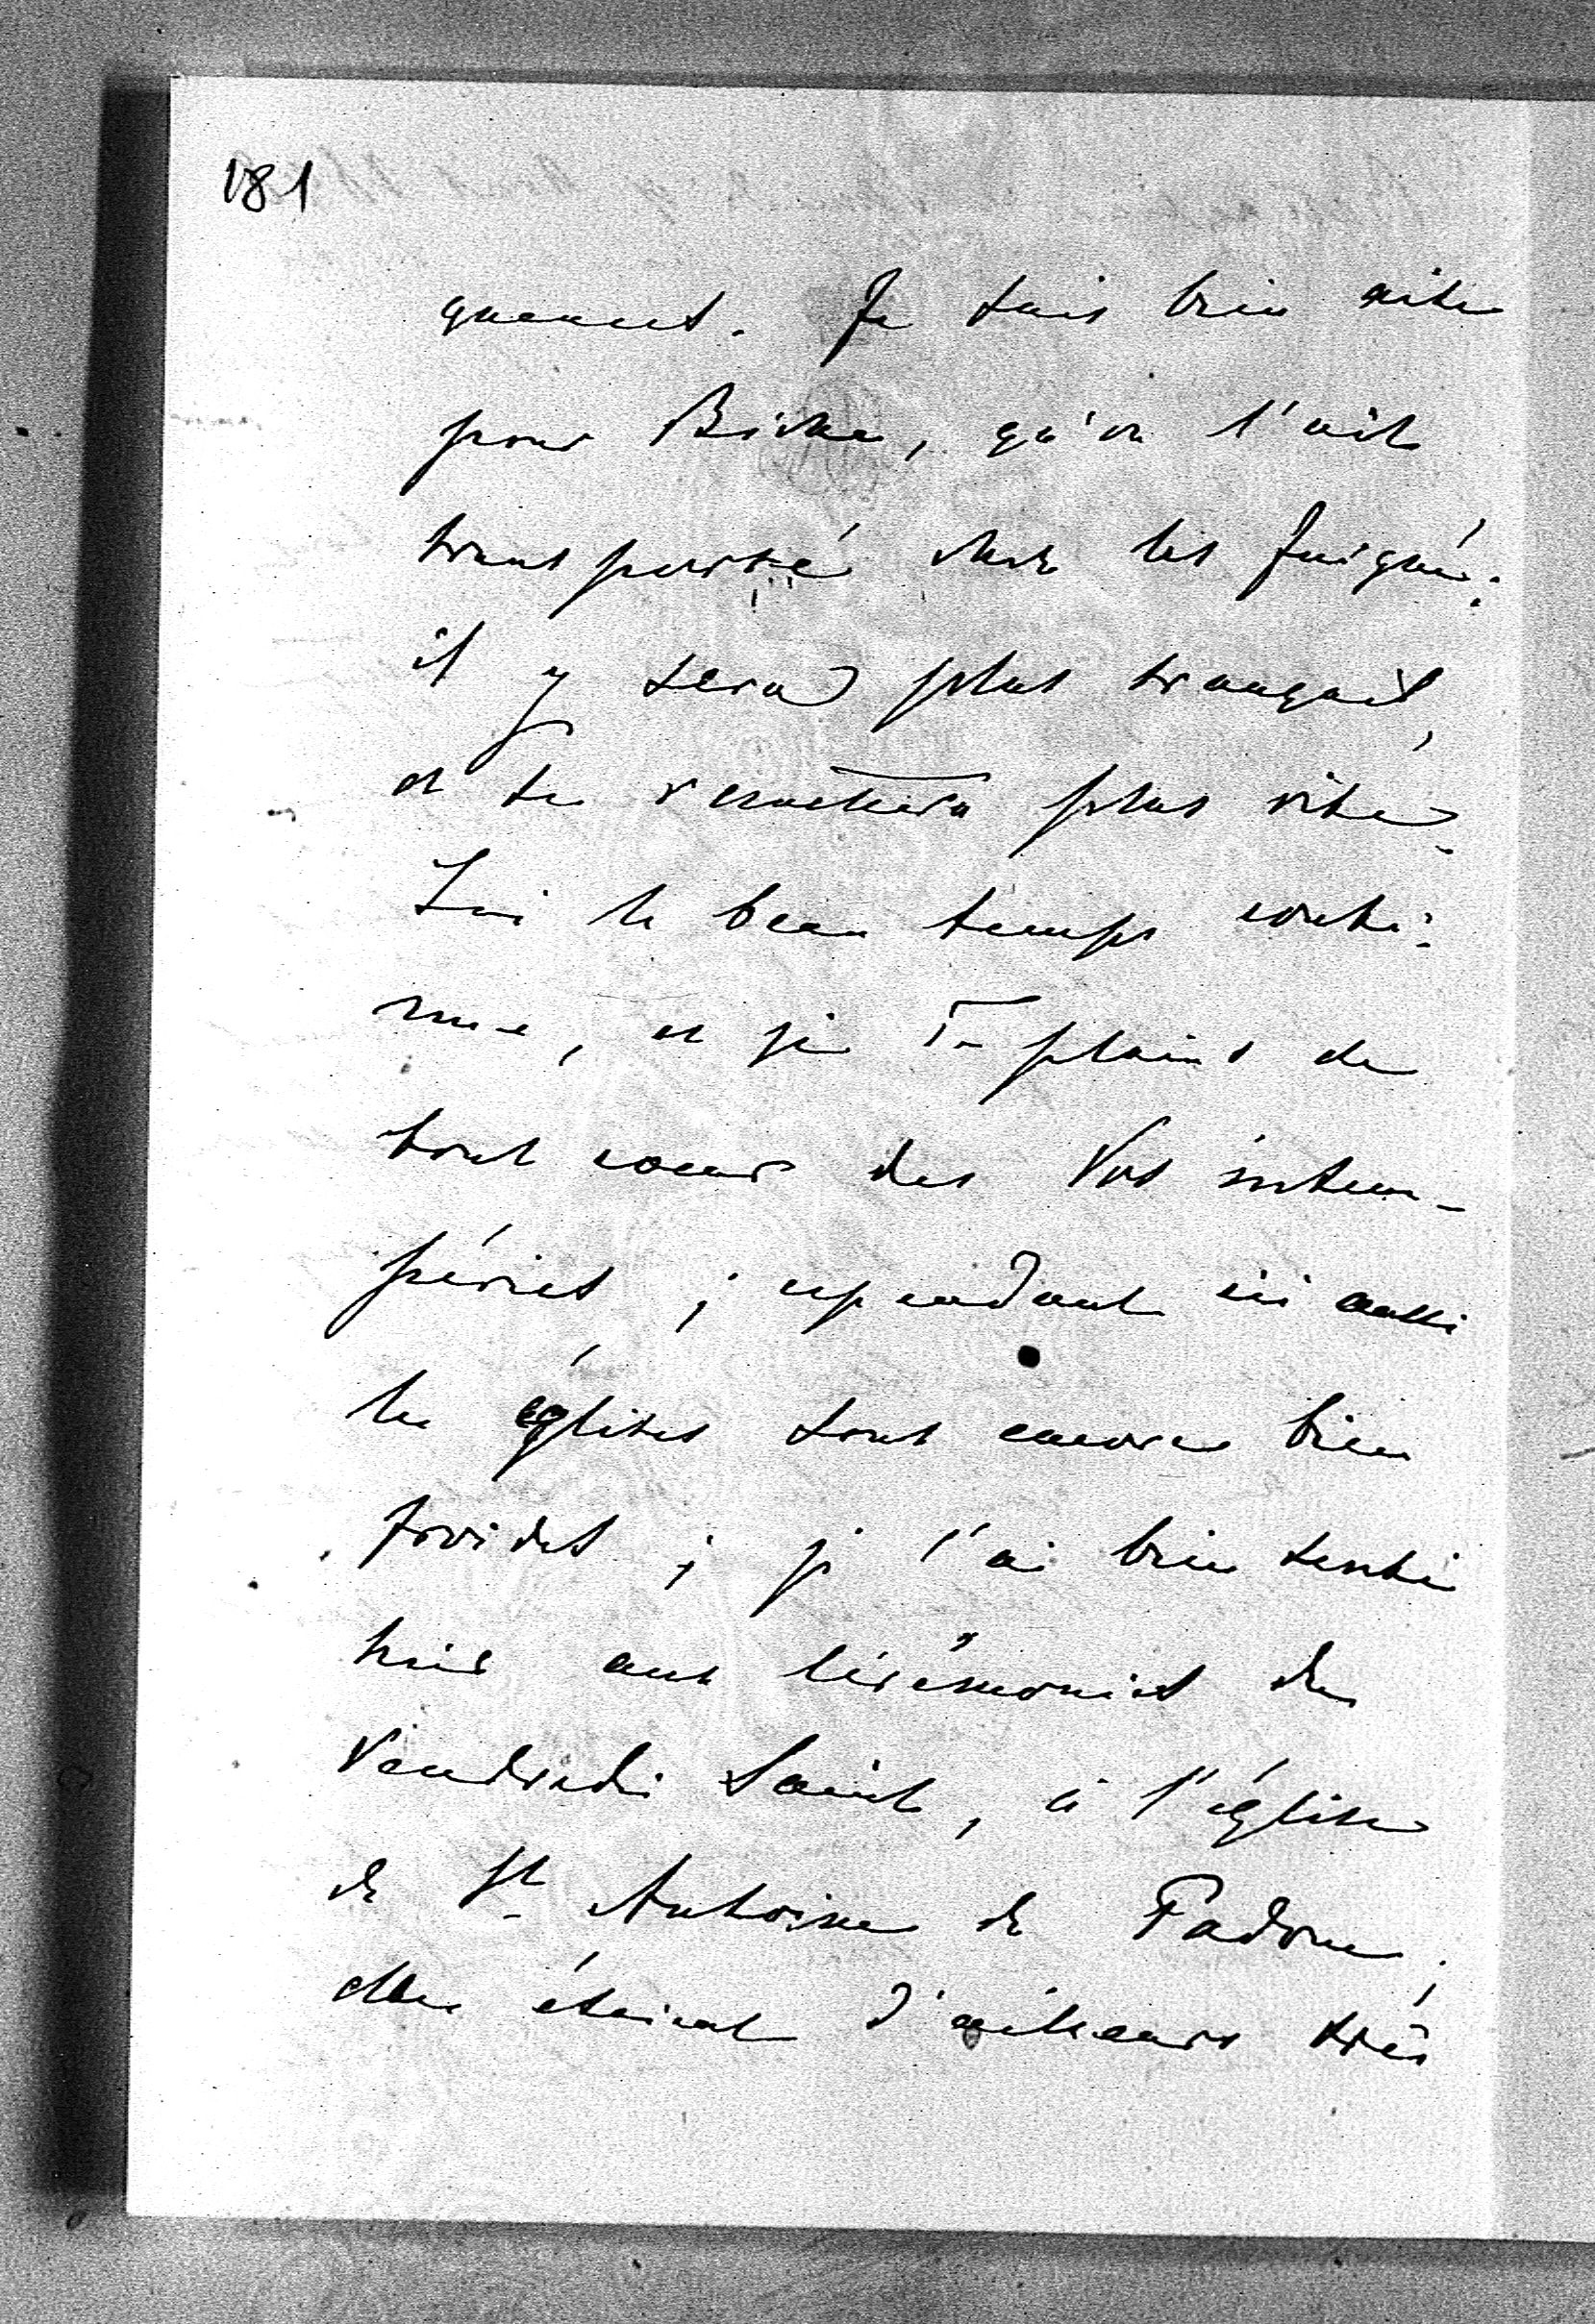 181
quement. Je suis bien aise
pour, qu'on l'ait
transporté chez les Juigné:
il y sera plus tranquil,
et se remettra plus vite.
Ici le beau temps conti:
nue, et je Te plains de
tout coeur des Vos intem-
péries ; cependant ici aussi
les églises sont encore bien
froides ; je l'ai bien senti
hier aux cérémonies du
Vendredi Saint, à l'église
de St Antoine de Padoue ;
elles étaient d'ailleurs très